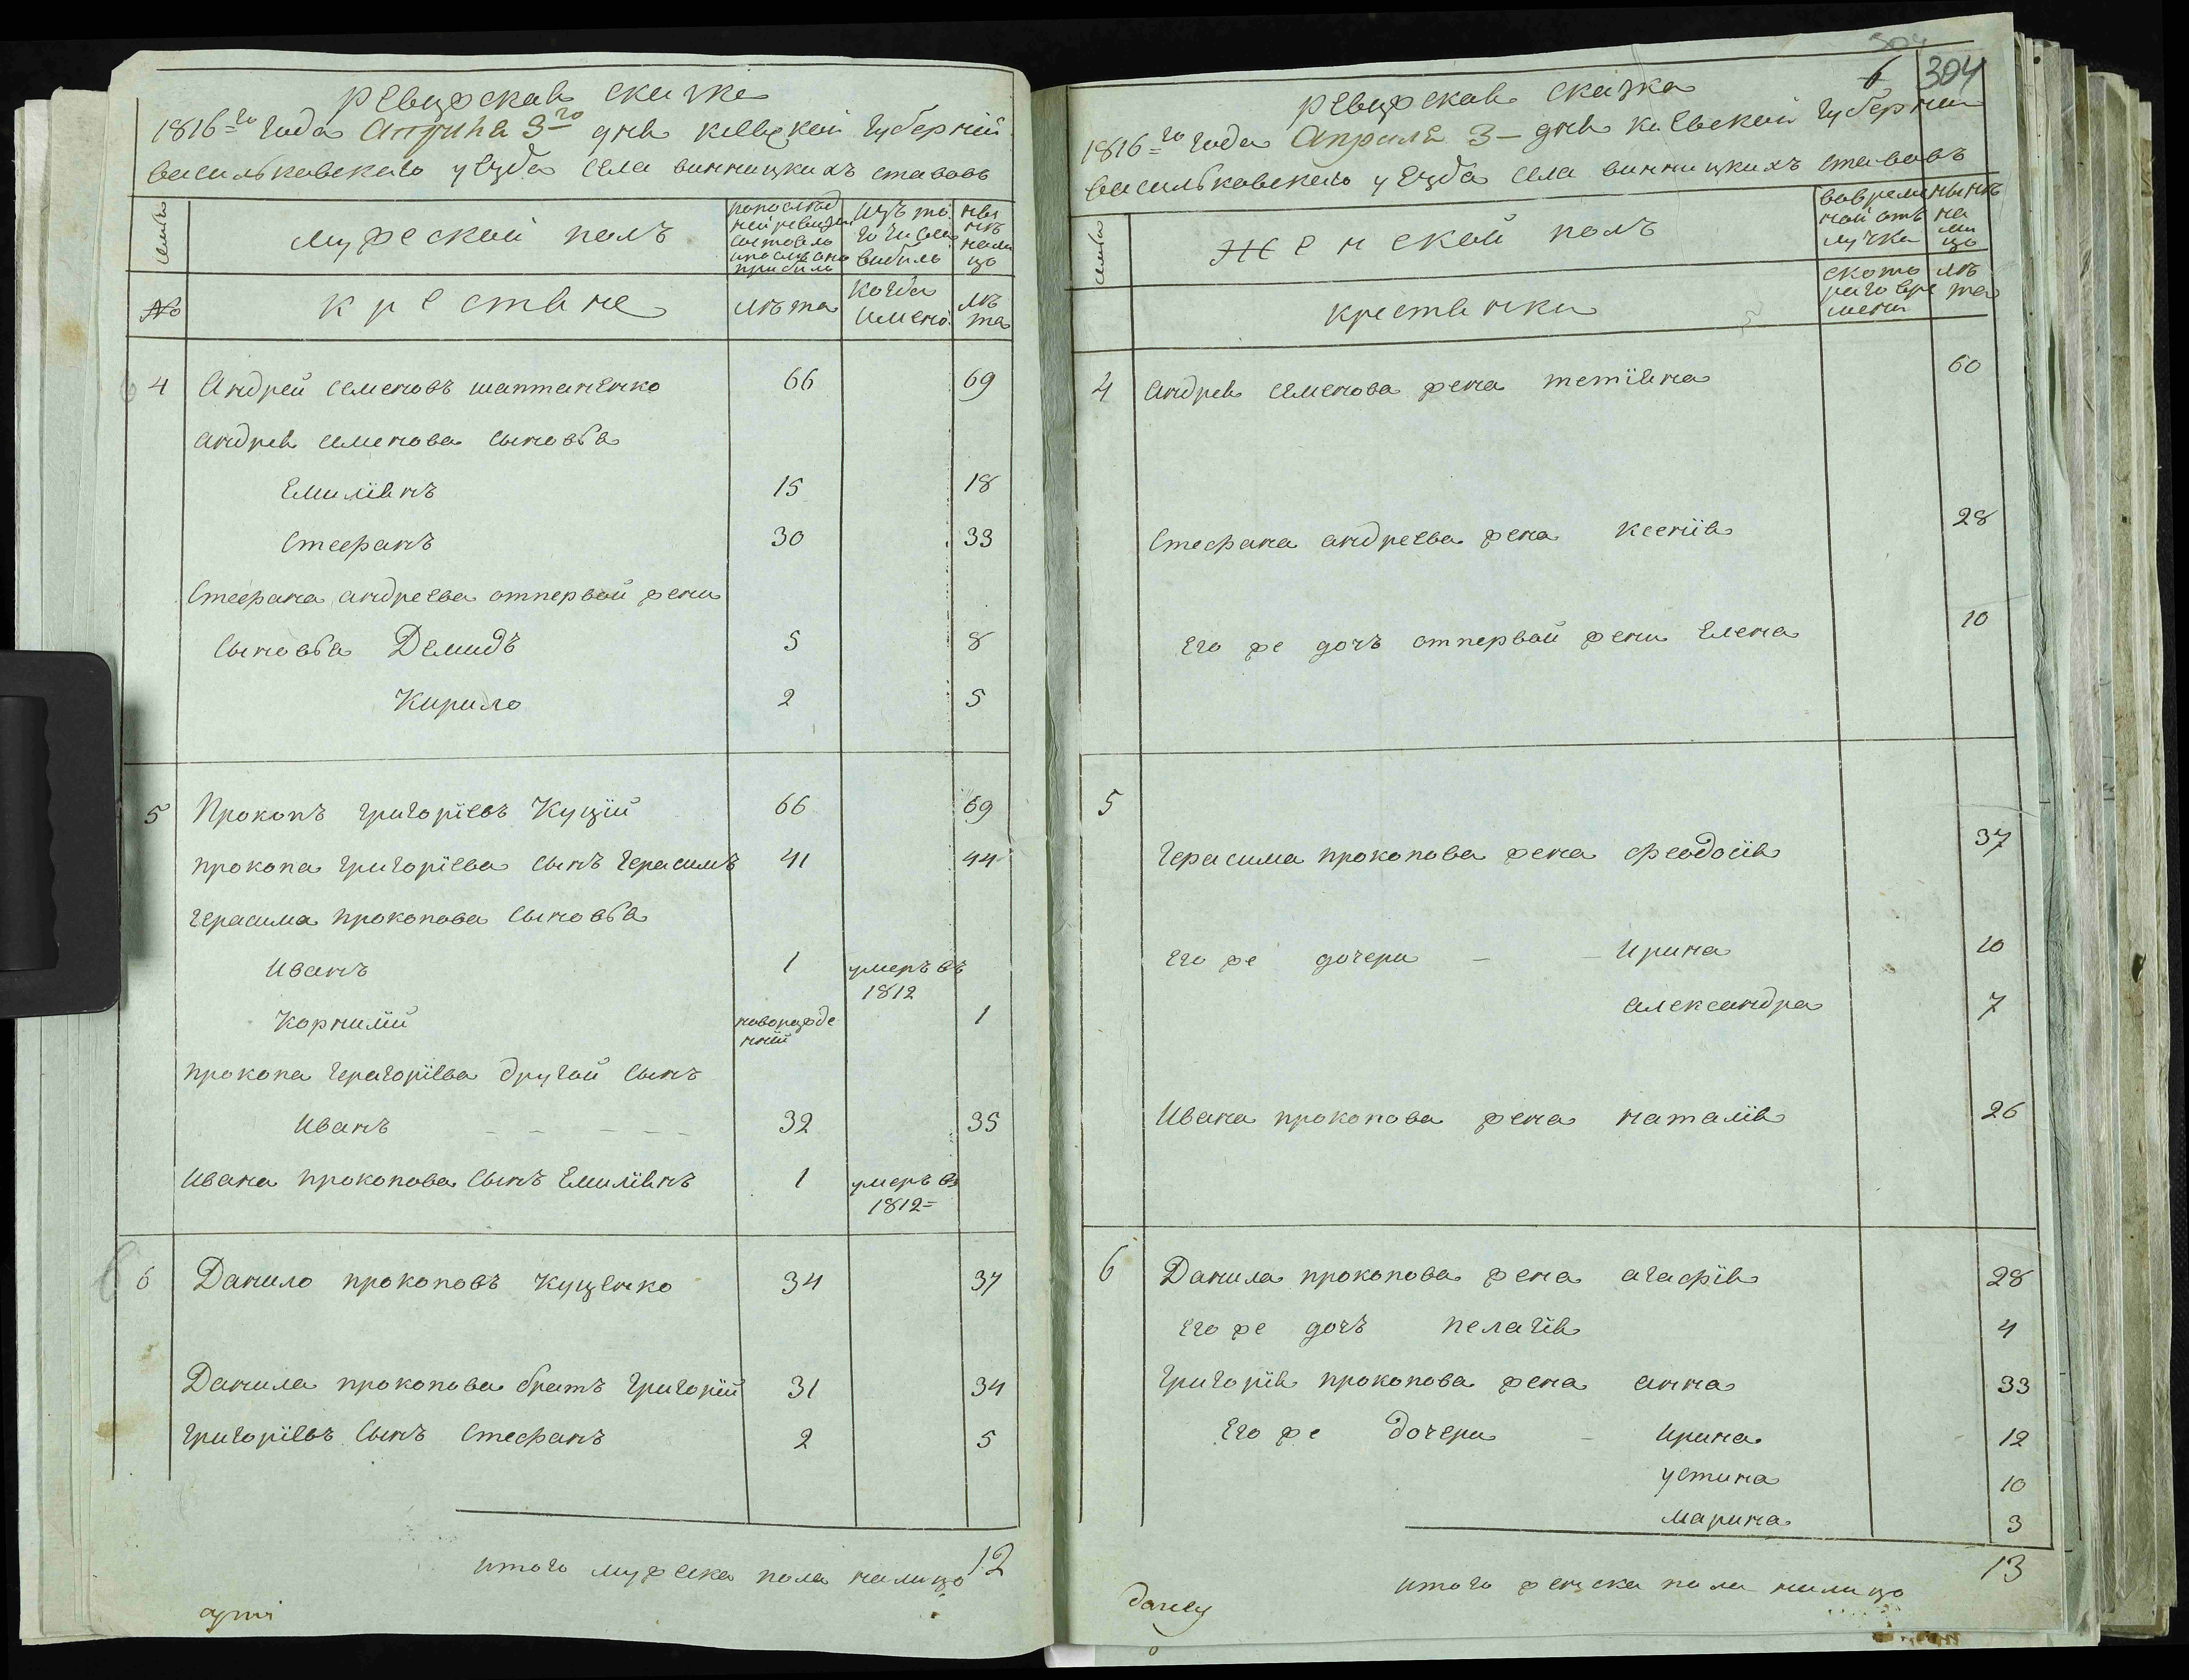 ревизская скаска
1816=го года Априля 3=го дня киевской губернии
васильковского уезда села винницкихъ ставовъ
семьи
мужеской полъ
изъ то
го числа
выбыло
ны
нѣ
нали
цо
№
крестяне
лѣта
когда
имено
лѣ
та
4 Андрей семеновъ шаптаненко 66 69
андрея семенова сыновья
Емилиянъ 15 18
Стефанъ 30 33
Стефана андреева отпервой жени
сыновья Демидъ 5 8
Кирило 2 5
5 Прокопъ григориевъ Куций 66 69
прокопа григориева сынъ герасимъ 41 44
герасима прокопова сыновья
Иванъ 1 умеръ въ
1812
Корнилий новорожде
ний 1
прокопа герагориева другой сынъ
Иванъ - - - - - 32 35
Ивана прокопова сынъ Емилиянъ 1 умеръ въ
1812=
6 Данило прокоповъ куценко 34 37
Данила прокопова братъ григорий 31 34
григориевъ сынъ Стефанъ 2 5
итого мужеска пола налицо 12
ревизская скаска
6 304
1816=го года Апреля 3- дня киевской губернии
васильковского уезда села винницкихъ ставовъ
семьи
Женской полъ
вовреме
ной отъ
лучке
нынѣ
на
ли
цо
крестянки
ското
раго вре
мени
лѣ
та
4 андрея семенова жена тетияна 60
Стефана андреева жена ксения 28
Его же дочъ отпервой жени Елена 10
5
герасима прокопова жена феодосия 37
его же дочери - - Ирина 10
александра 7
Ивана прокопова жена наталия 26
6 Данила прокопова жена агафия 28
его же дочъ пелагия 4
григория прокопова жена анна 33
Его же дочери - Ирина 12
устина 10
марина 3
итого женска пола налицо 13